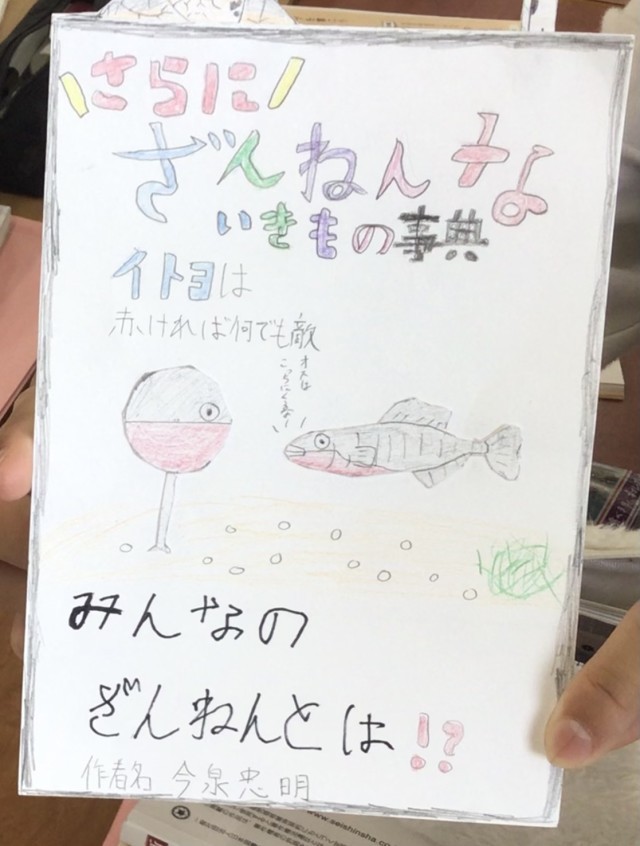 さらに
ざんねんな
いきもの事典
イトヨは
赤ければ何でも敵
オスは
こっちにくるな!
みんなの
ざんねんとは!?
作者名 今泉忠明
www.seishinsha.co